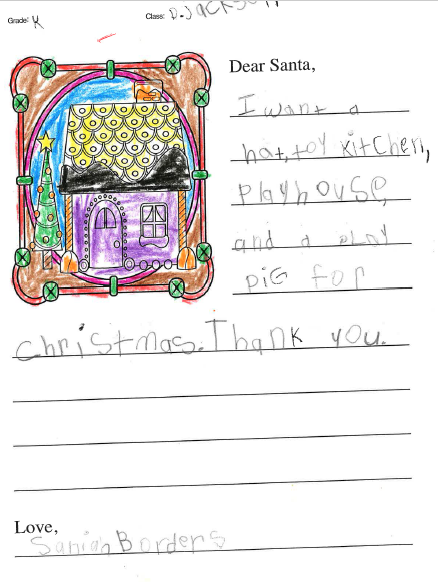 Grade: K Class: D. Jackson
Dear Santa,
I want a
hat, toy kitchen,
playhouse,
and a play
piG for
christmas. Thank you.
Love,
Saniah Borders